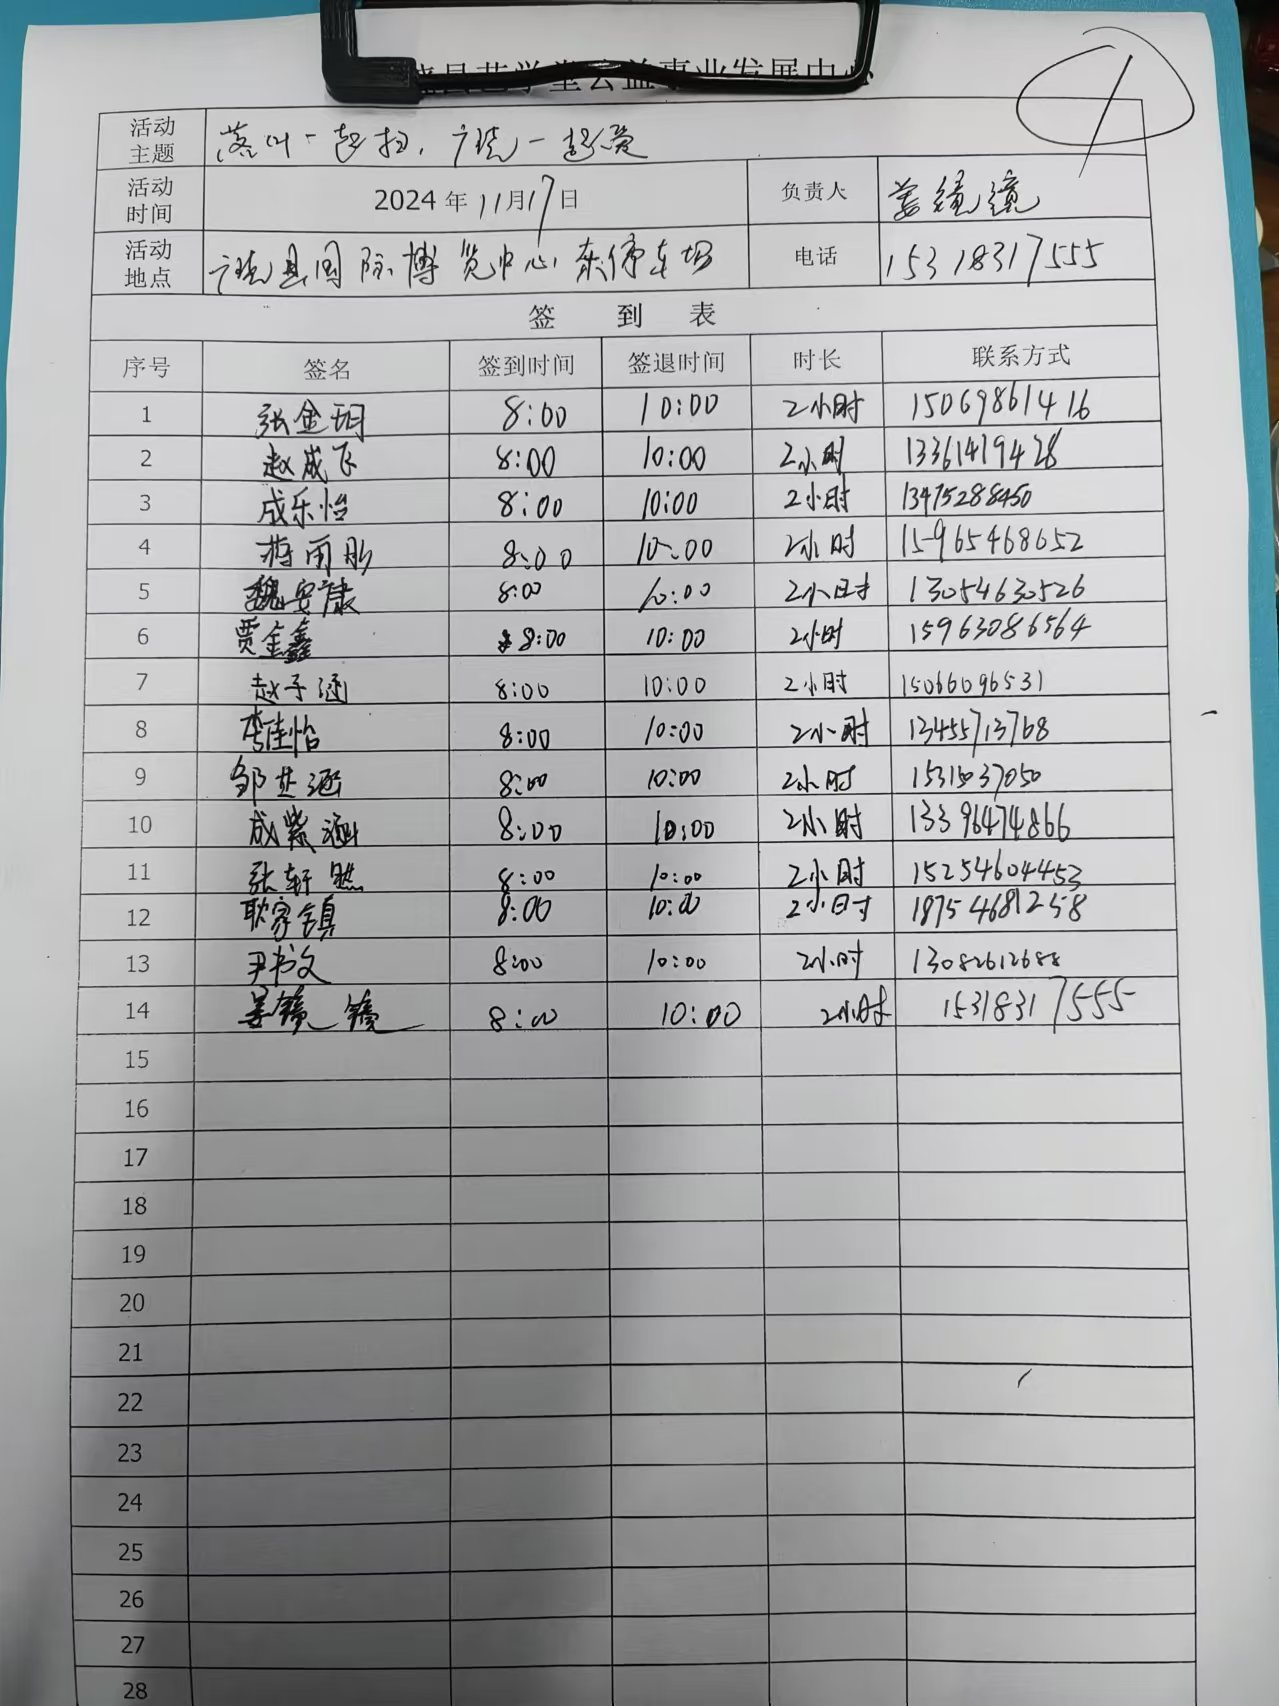 公益事业发展中心
活动主题 落叶一起扫，广饶一起爱
活动时间 2024年11月17日 负责人
活动地点 广饶县国际博览中心东停车场 电话 15318317555
签 到 表
序号 签名 签到时间 签退时间 时长 联系方式
1 张金玥 8:00 10:00 2小时 15069861416
2 赵成飞 8:00 10:00 2小时 13361419428
3 成乐怡 8:00 10:00 2小时 13475288450
4 蒋雨彤 8:00 10:00 2小时 15965468652
5 魏安康 8:00 10:00 2小时 13054630526
6 贾金鑫 8:00 10:00 2小时 15963086564
7 赵子涵 8:00 10:00 2小时 15066096531
8 李佳怡 8:00 10:00 2小时 13455713768
9 邹芷涵 8:00 10:00 2小时 15315037050
10 成紫涵 8:00 10:00 2小时 13396474866
11 张轩 8:00 10:00 2小时 15254604453
12 耿家镇 8:00 10:00 2小时 18754681258
13 尹书文 8:00 10:00 2小时 13082612688
14 8:00 10:00 2小时 15318317555
15
16
17
18
19
20
21
22
23
24
25
26
27
28